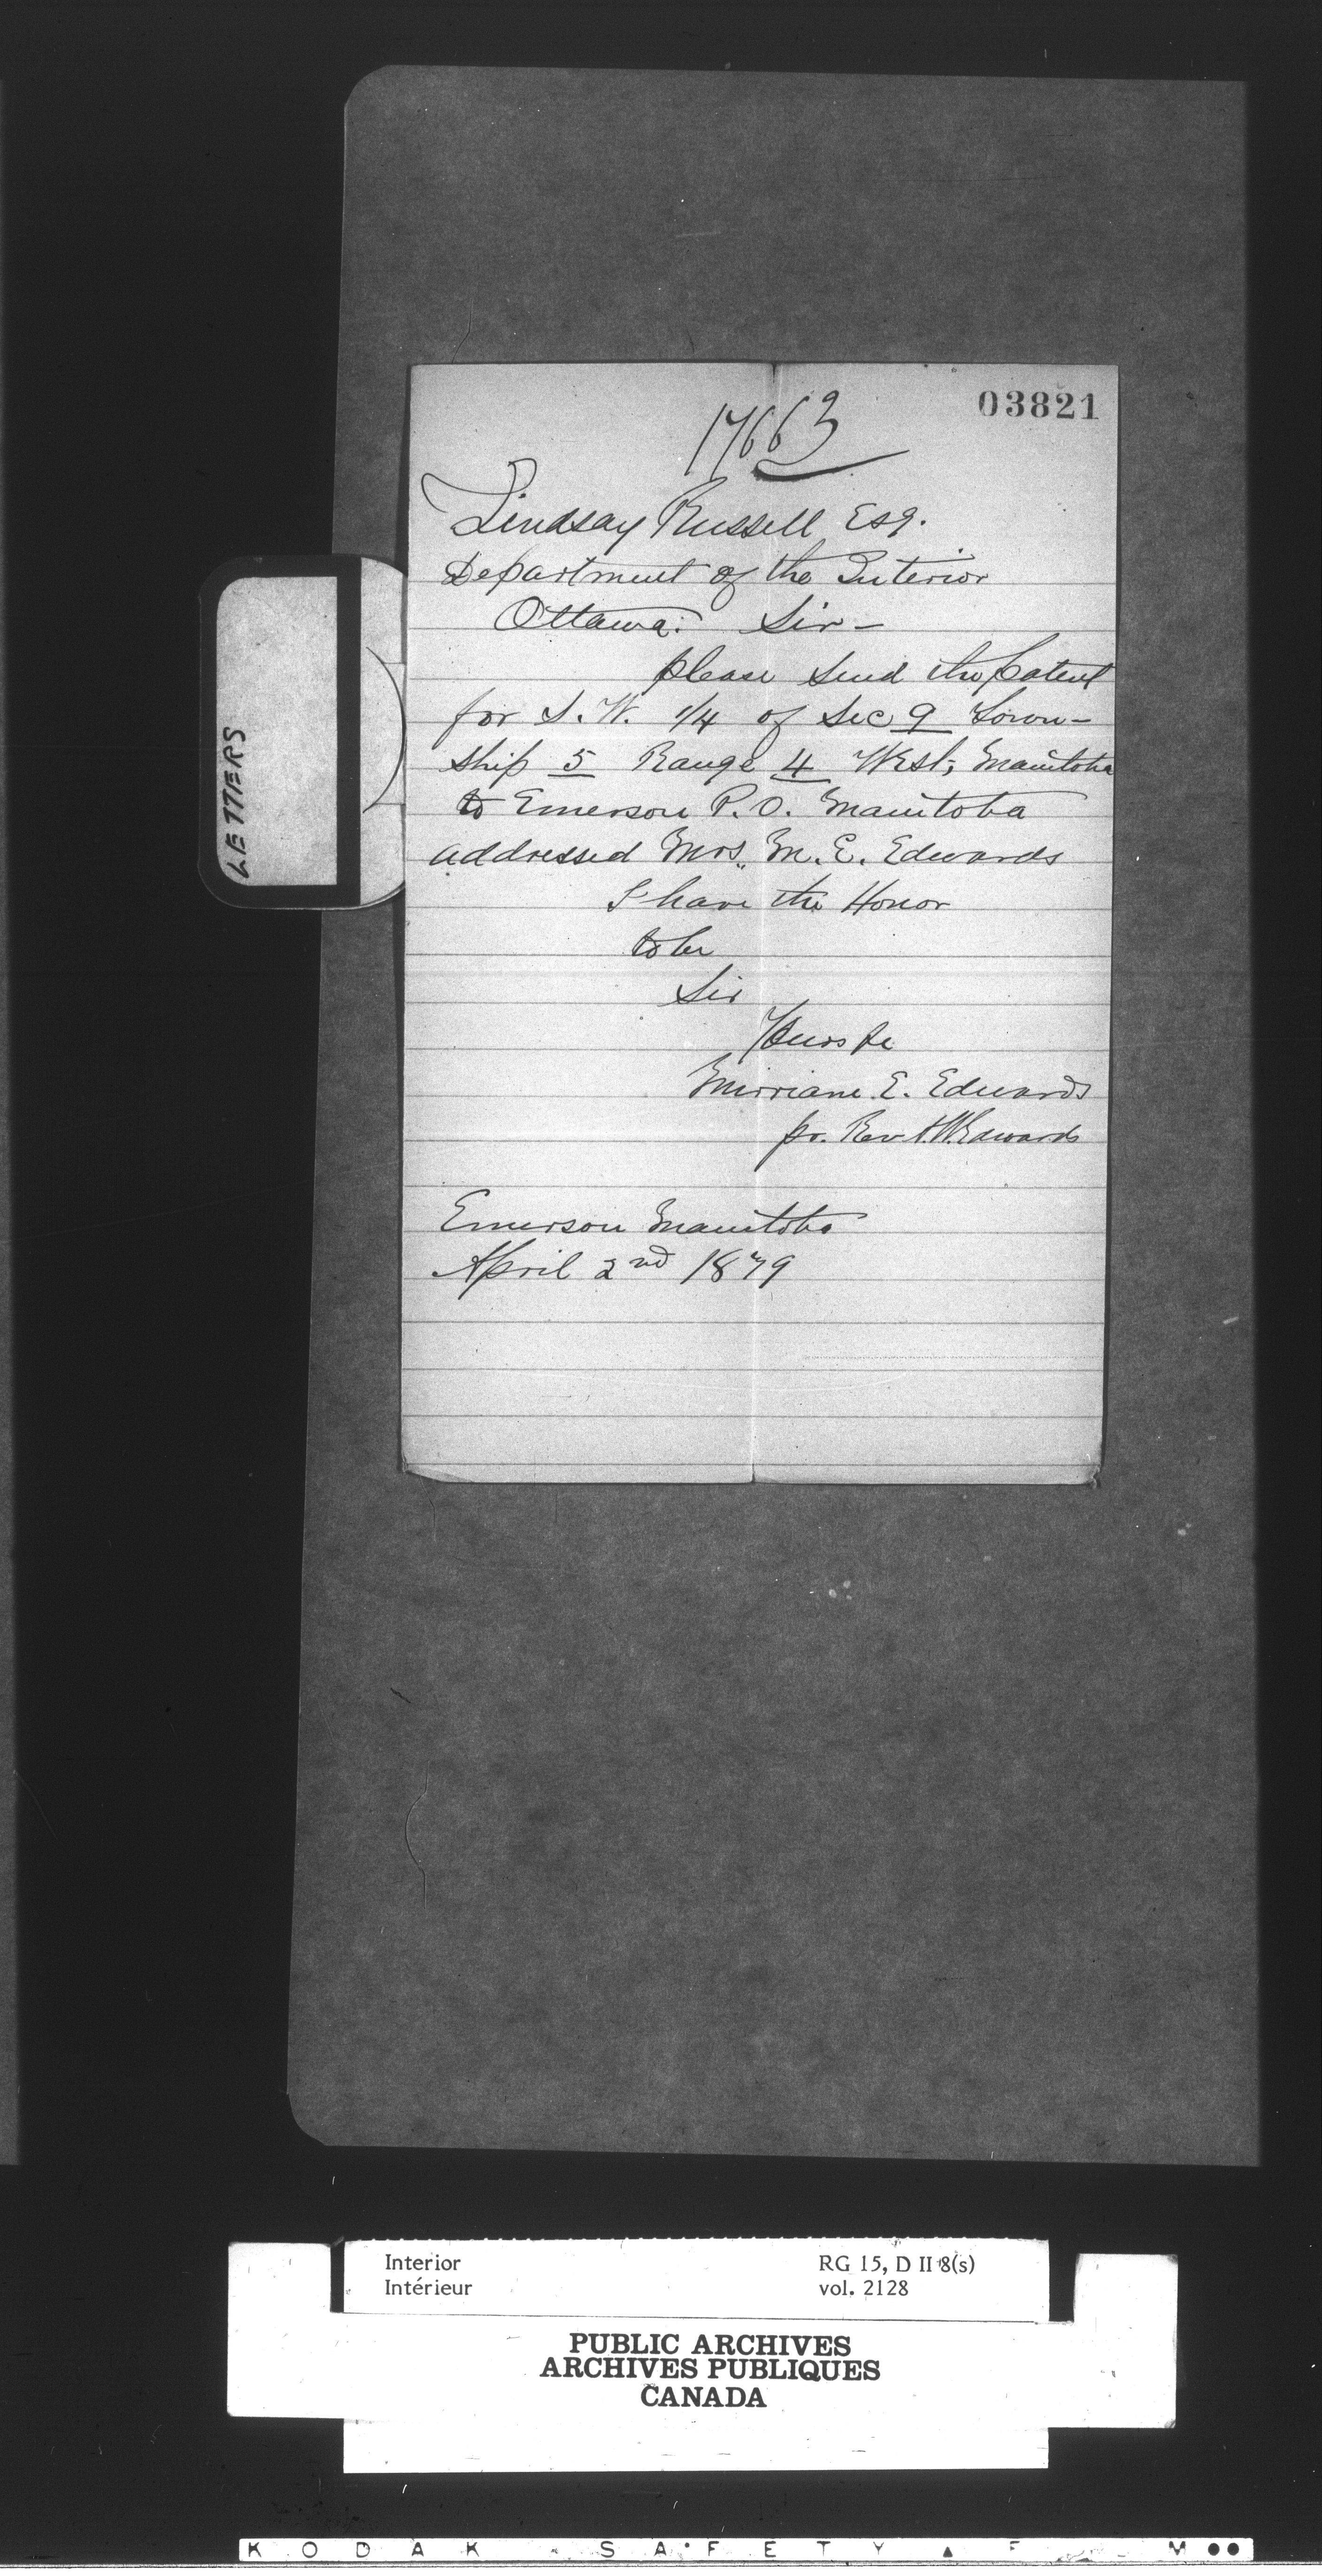 03821
17663
Lindsay Russell Esq.
Department of the Interior
Ottawa. Sir-
please send the patent
for S.W. 1/4 of Sec 9 Town-
ship 5 Range 4 West, Manitoba
to Emerson P.O. Manitoba
addressed Mrs. M. E. Edwards
I have the Honor
to be
Sir
Yours &c
E. Edwards
pr. Rev A.W. Edwards
Emerson Manitoba
April 2nd 1879
LETTERS
Interior RG 15, D II 8(s)
Intérieur vol. 2128
PUBLIC ARCHIVES
ARCHIVES PUBLIQUES
CANADA
KODAK SAFETY F M